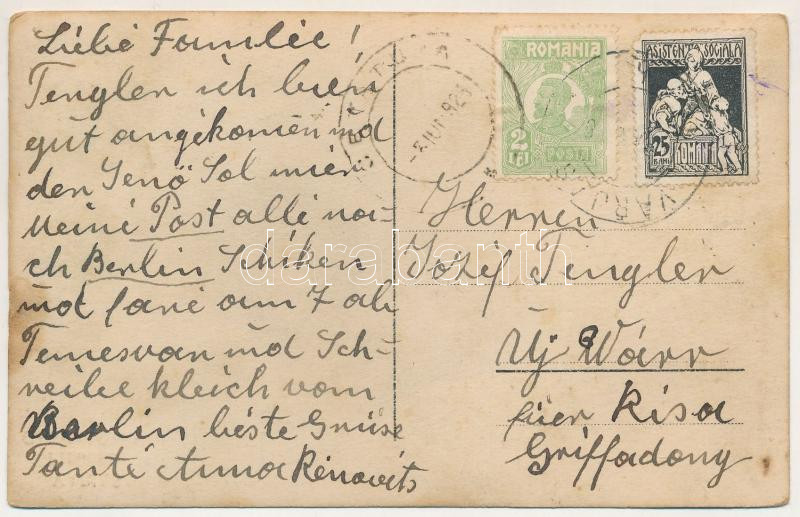 Liebé Famliée!
Tengler ich bien
gut angékomen und
der Jenö Sol mier
Meiné Post allé na-
ch Berlin Schiken
und faré am 7 ab
Temesvar und Sch-
reibe kleich vom
Berlin béste Grüse
Tanté Anna Rénovits
ROMANIA
2
LEI
POSTA
ASISTENTA SOCIALA
25
BANI
ROMANIA
Herren
Józif Tengler
Uj Wárr
füer Risa
Griffadony
darabanth